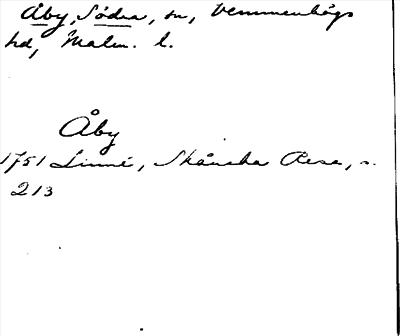 Åby, Södra, sn, Vemmenhögs
hd, Malm. l.
Åby
1751 Linné, Skånska Resa, s.
213